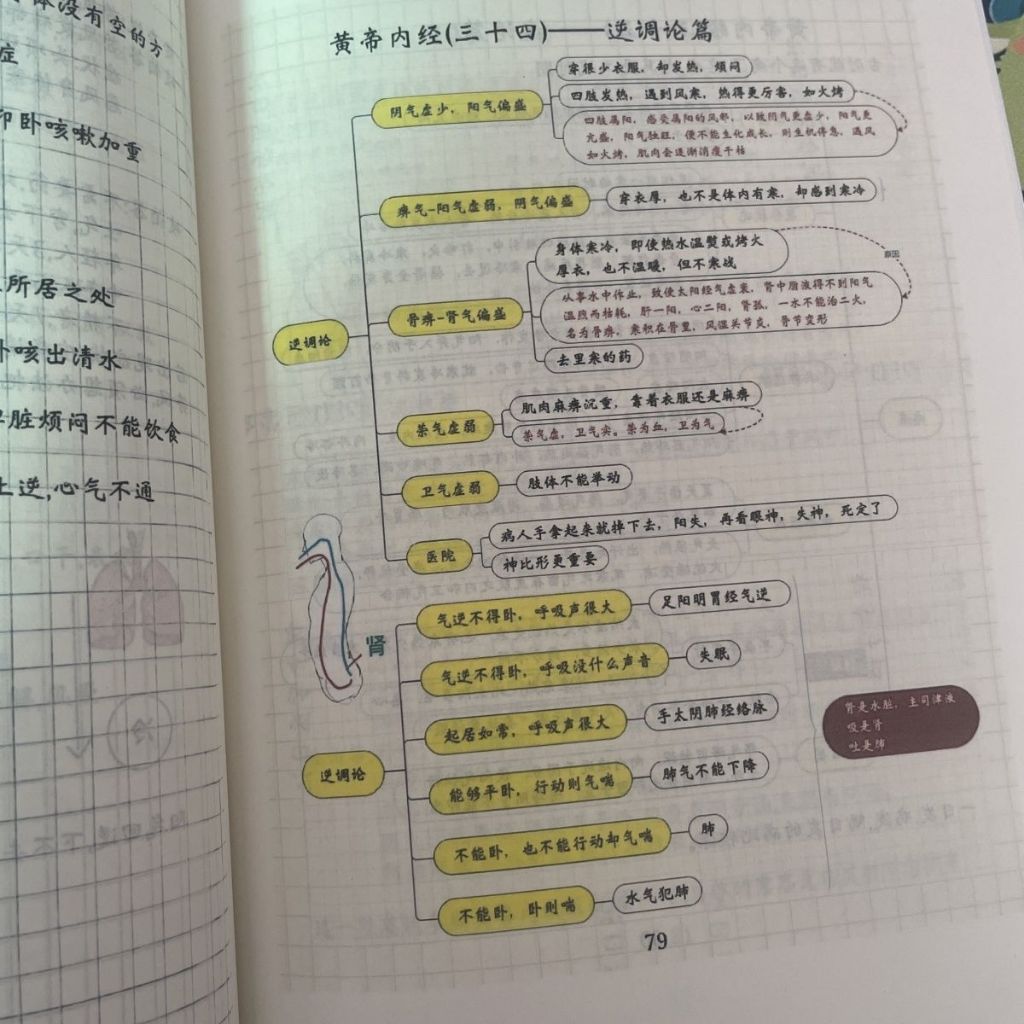 体没有空的方
症
卧咳嗽加重
所居之处
卧咳出清水
脏烦闷不能饮食
上逆,心气不通
黄帝内经(三十四)——逆调论篇
逆调论
阴气虚少，阳气偏盛
穿很少衣服，却发热，烦闷
四肢发热，遇到风寒，热得更厉害，如火烤
四肢属阳，感受属阳的风邪，以致阴气更虚少，阳气更
亢盛，阳气独旺，便不能生化成长，则生机停息，遇风
如火烤，肌肉会逐渐消瘦干枯
痹气-阳气虚弱，阴气偏盛
穿衣厚，也不是体内有寒，却感到寒冷
骨痹-肾气偏盛
身体寒冷，即使热水温熨或烤火
厚衣，也不温暖，但不寒战
原因
从事水中作业，致使太阳经气虚衰，肾中脂液得不到阳气
温煦而枯耗，肝一阳，心二阳，肾孤，一水不能治二火，
名为骨痹，寒积在骨里，风湿关节炎，骨节变形
去里寒的药
荣气虚弱
肌肉麻痹沉重，靠着衣服还是麻痹
荣气虚，卫气实。荣为血，卫为气
卫气虚弱
肢体不能举动
医院
病人手拿起来就掉下去，阳失，再看眼神，失神，死定了
神比形更重要
肾
逆调论
气逆不得卧，呼吸声很大
足阳明胃经气逆
气逆不得卧，呼吸没什么声音
失眠
起居如常，呼吸声很大
手太阴肺经络脉
能够平卧，行动则气喘
肺气不能下降
不能卧，也不能行动却气喘
肺
不能卧，卧则喘
水气犯肺
肾是水脏，主司津液
吸是肾
吐是肺
79